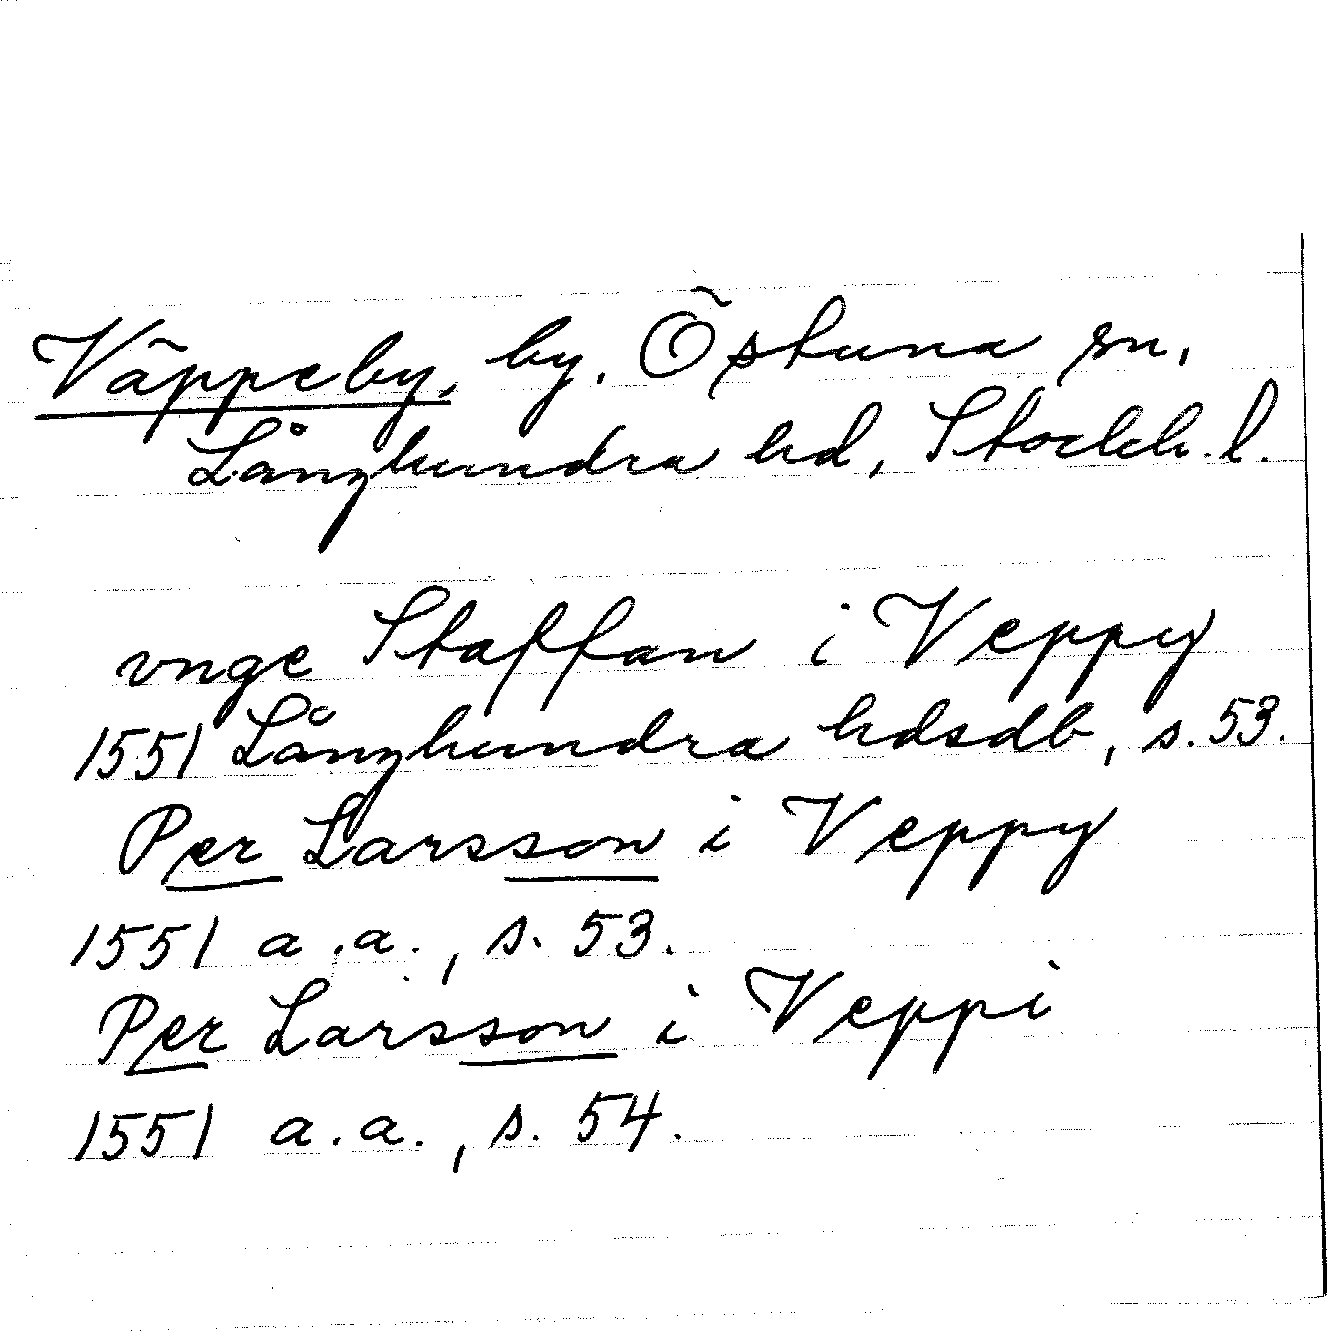 Väppeby, by, Östuna sn,
Långhundra hd, Stockh. l.
vnge Staffan i Veppy
1551 Långhundra hdsdb, s. 53.
Per Larsson i Veppy
1551 a.a., s. 53.
Per Larsson i Veppi
1551 a.a., s. 54.